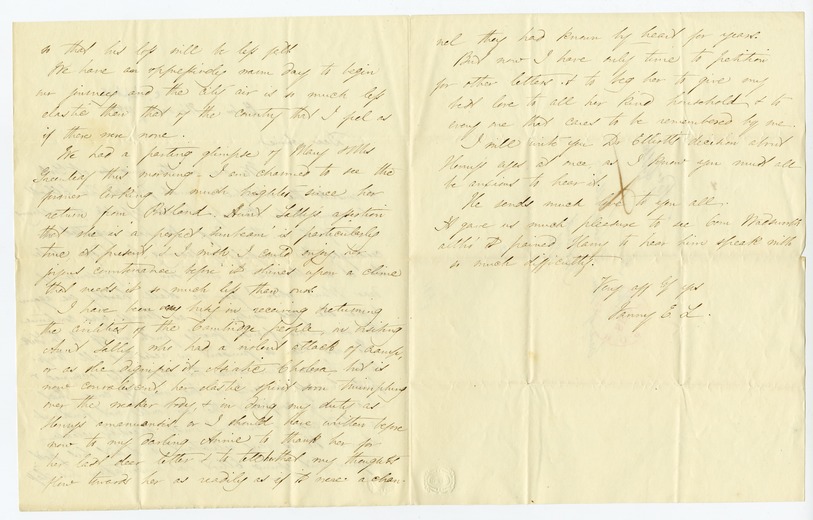 so that his loss will be less felt
We have an oppressively warm day to begin
our journey and the salt air is so much less
elastic than that of the country that I feel as
if there were none.
We had a parting glimpse of Mary & Mrs
Greenleaf this morning. I am charmed to see the
former looking so much brighter since her
return from Portland. Aunt Sally's assertion
that she is a perfect sunbeam is particularly
true at present & I wish I could enjoy its
joyous countenance before it shines upon a clime
that needs it so much less than ours.
I have been very busy in receiving & returning
the civilities of the Cambridge people, in visiting
Aunt Sally who had a violent attack of
or as she dignifies it Asiatic Cholera but is
now convalescent, her elastic spirit soon triumphing
over the weaker body, & in doing my duty as
Henry's amanuensis or I should have written before
now to my darling Annie to thank her for
her last dear letter & to tell her that my thoughts
flow towards her as readily as if it were a chan-
nel they had known by heart for years.
But now I have only time to petition
for other letters & to beg her to give my
best love to all her kind household & to
every one that cares to be remembered by me.
I will write you Dr Elliott's decision about
Henry's eyes at once, as I know you must all
be anxious to hear it.
He sends much love to you all.
It gave us much pleasure to see Com Wadsworth
altho' it pained Henry to hear him speak with
so much difficulty.
Very aff yrs
Fanny E L.